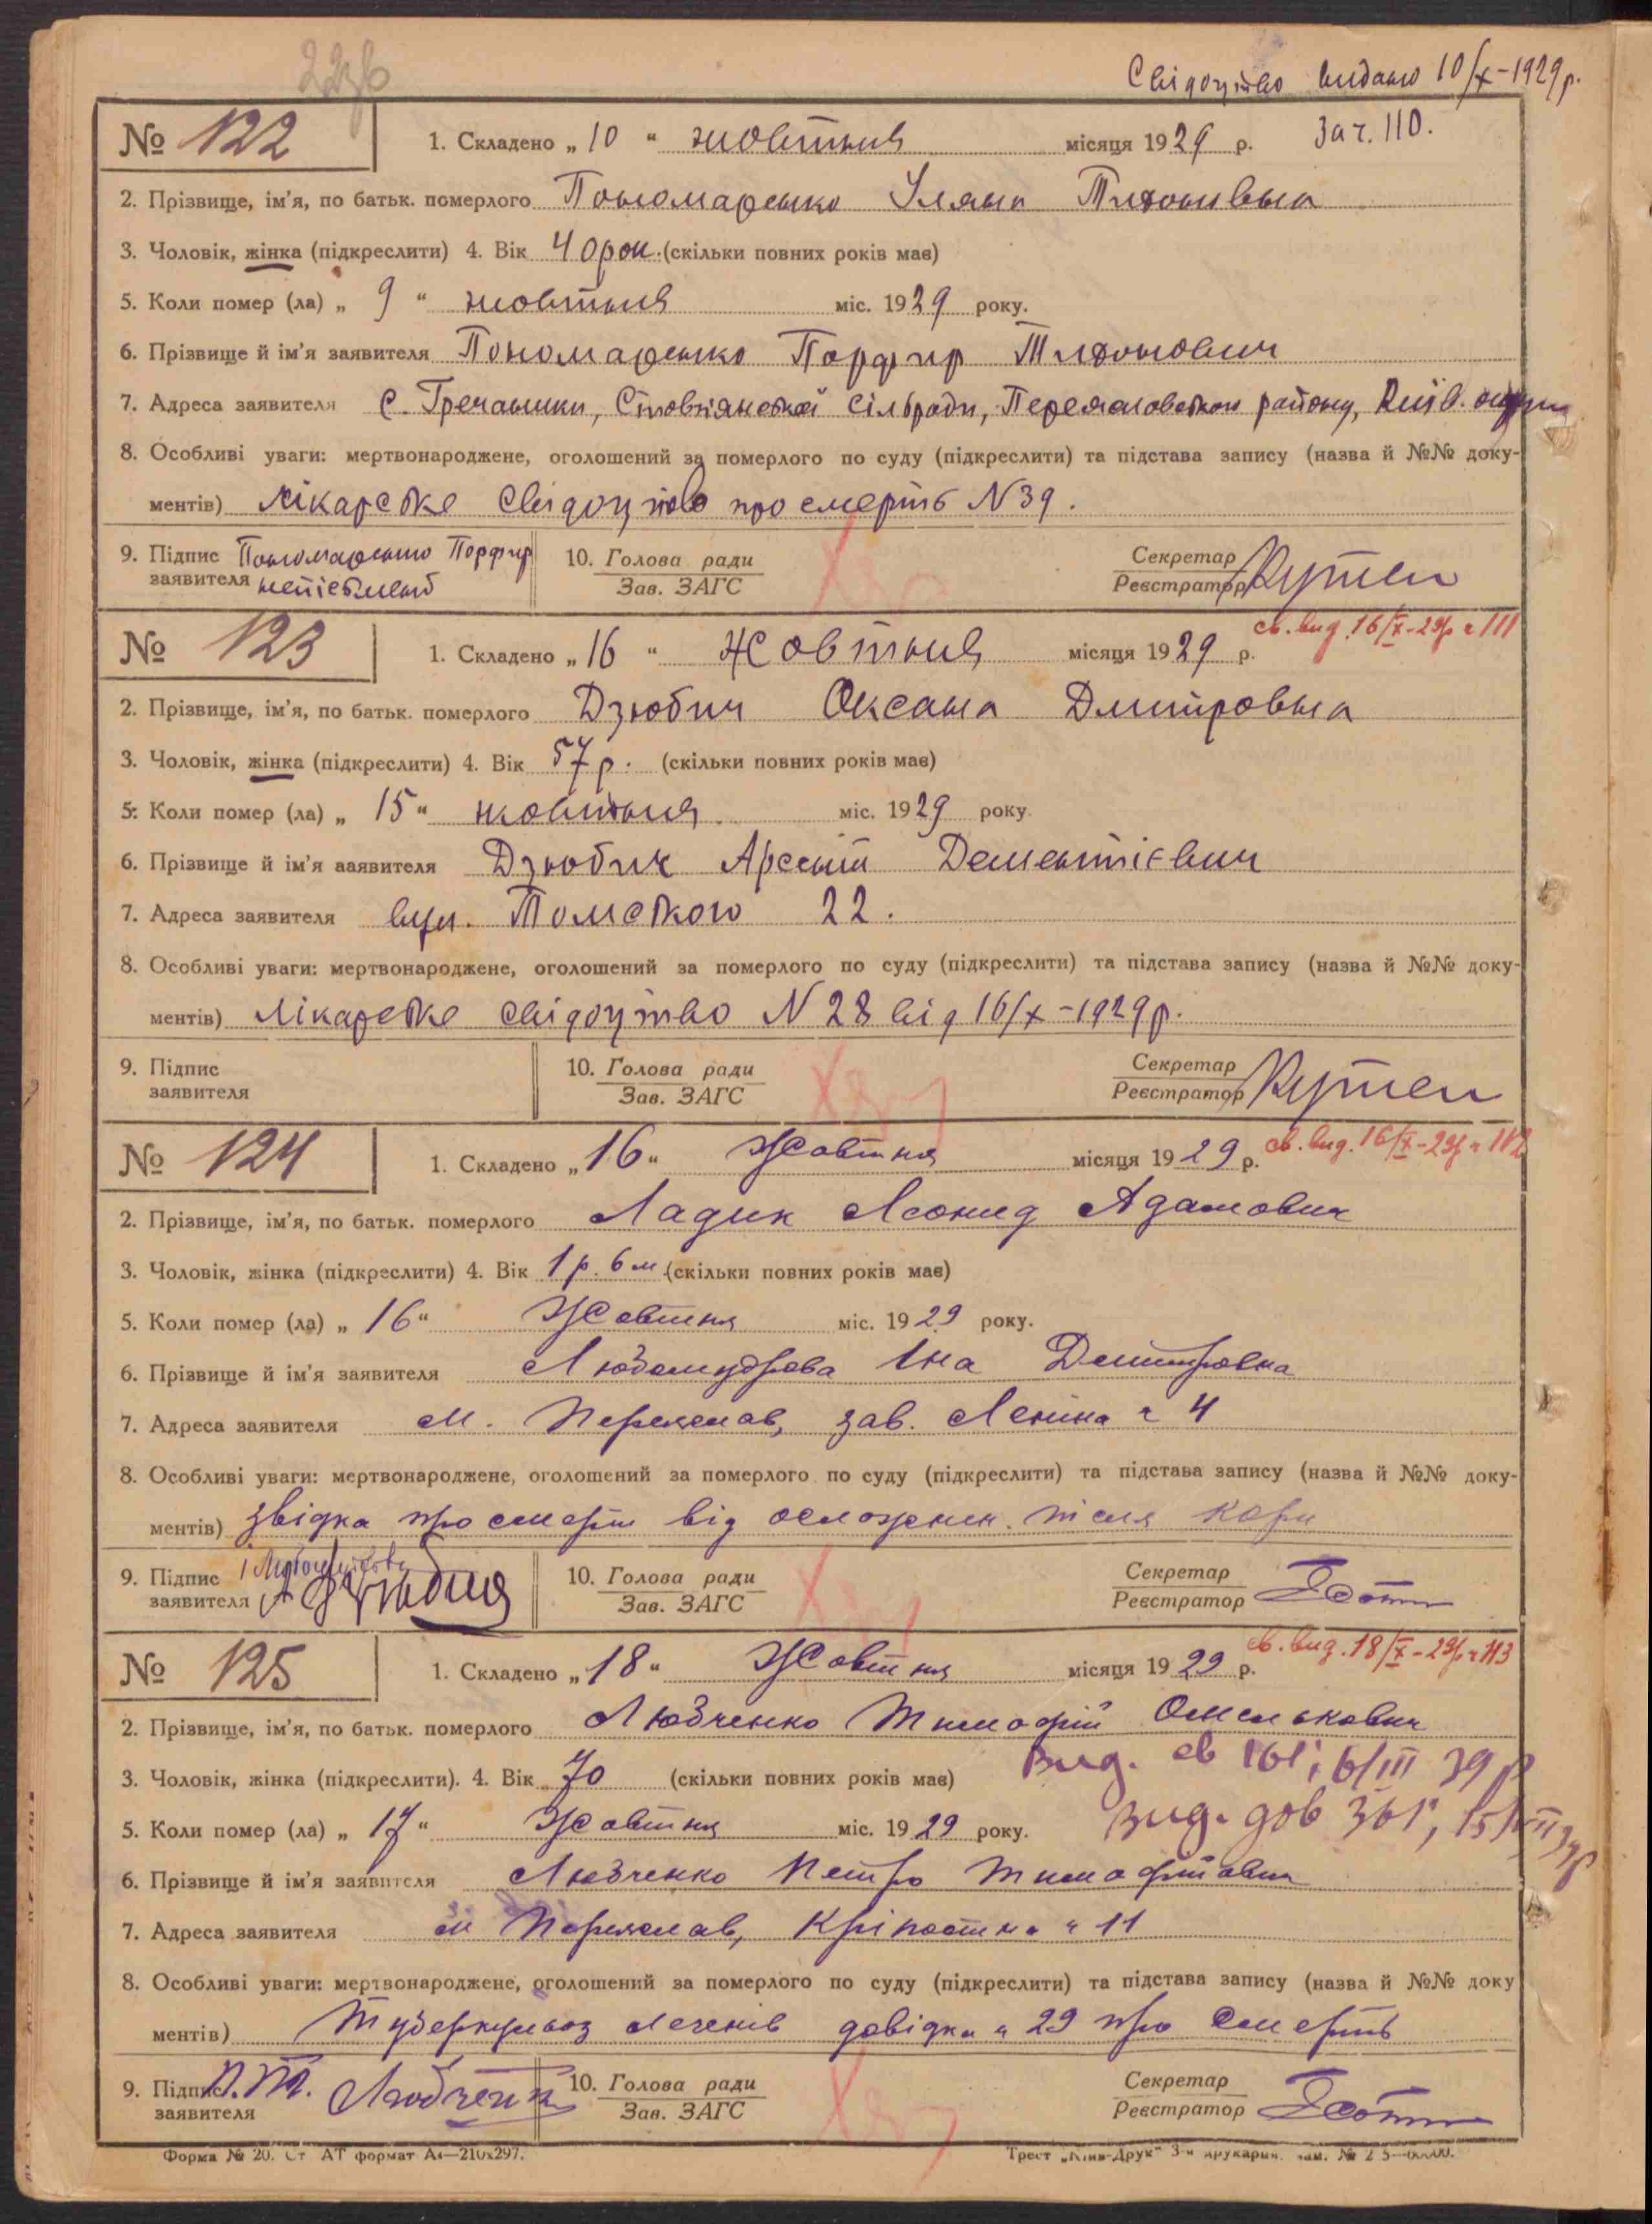 Свідоцтво видано 10/X-1929р.
№ 122 1. Складено „ 10 “ жовтня місяця 1929 р. за ч. 110.
2. Прізвище, ім'я, по батьк. померлого Пономаренко Уляна Тихоновна
3. Чоловік, жінка (підкреслити) 4. Вік 40 рок. (скільки повних років має)
5. Коли помер (ла) „ 9 “ жовтня міс. 1929 року.
6. Прізвище й ім'я заявителя Пономаренко Порфир Тихонович
7. Адреса заявителя с. Гречаники, Стовп'янської сільради, Переяславського району, Київ.
8. Особливі уваги: мертвонароджене, оголошений за померлого по суду (підкреслити) та підстава запису (назва й №№ доку-
ментів) Лікарське свідоцтво про смерть N 39.
9. Підпис Пономаренко Порфир 10. Голова ради Секретар
заявителя неписьмен Зав. ЗАГС Реєстратор
№ 123 1. Складено „ 16 “ Жовтня місяця 1929 р. св. вид. 16/X-29р ч 111
2. Прізвище, ім'я, по батьк. померлого Дзюбич Оксана Дмитровна
3. Чоловік, жінка (підкреслити) 4. Вік 57 р. (скільки повних років має)
5. Коли помер (ла) „ 15 “ жовтня міс. 1929 року.
6. Прізвище й ім'я заявителя Дзюбич Арсеній Дементієвич
7. Адреса заявителя вул. Томського 22.
8. Особливі уваги: мертвонароджене, оголошений за померлого по суду (підкреслити) та підстава запису (назва й №№ доку-
ментів) Лікарське свідоцтво N 28 від 16/X-1929р.
9. Підпис 10. Голова ради Секретар
заявителя Зав. ЗАГС Реєстратор
№ 124 1. Складено „ 16 “ Жовтня місяця 1929 р. св. вид. 16/X-29р ч 112
2. Прізвище, ім'я, по батьк. померлого Ладик Леонид Адамович
3. Чоловік, жінка (підкреслити) 4. Вік 1 р. 6 м. (скільки повних років має)
5. Коли помер (ла) „ 16 “ Жовтня міс. 1929 року.
6. Прізвище й ім'я заявителя Любомудрова Іна Дмитровна
7. Адреса заявителя м. Переяслав, зав. Леніна ч 4
8. Особливі уваги: мертвонароджене, оголошений за померлого по суду (підкреслити) та підстава запису (назва й №№ доку-
ментів) звідка про смерть від осложнен. після кори
9. Підпис 10. Голова ради Секретар
заявителя Зав. ЗАГС Реєстратор
№ 125 1. Складено „ 18 “ Жовтня місяця 1929 р. св. вид. 18/X-29р ч 113
2. Прізвище, ім'я, по батьк. померлого Любченко Тимофій Омелькович
3. Чоловік, жінка (підкреслити). 4. Вік 70 (скільки повних років має) Вид. св 161, 6/III 39 р
5. Коли помер (ла) „ 17 “ Жовтня міс. 1929 року. вид. дов 361,
6. Прізвище й ім'я заявителя Любченко Петро Тимофійович
7. Адреса заявителя м Переяслав, Кріпостна ч 11
8. Особливі уваги: мертвонароджене, оголошений за померлого по суду (підкреслити) та підстава запису (назва й №№ доку
ментів) Туберкульоз легенів довідка ч 29 про смерть
9. Підпис П. Т. Любченко 10. Голова ради Секретар
заявителя Зав. ЗАГС Реєстратор
Форма № 20. Ст АТ формат А4—210х297. Трест „Київ-Друк“ 3-я друкарня.